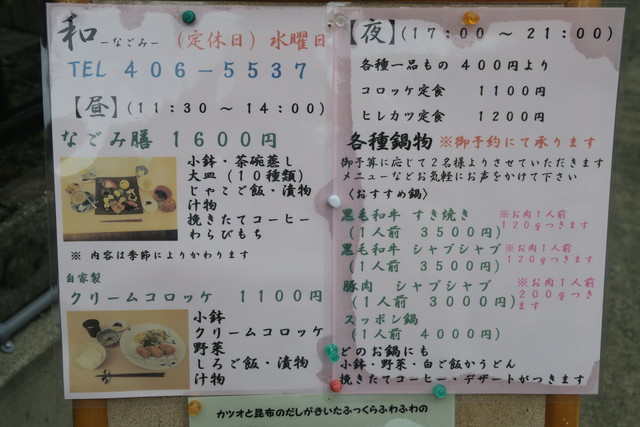 和 ―なごみ― (定休日) 水曜日
TEL 406－5537
【昼】(11:30 ～ 14:00)
なごみ膳 1600円
小鉢・茶碗蒸し
大皿(10種類)
じゃこご飯・漬物
汁物
挽きたてコーヒー
わらびもち
※ 内容は季節によりかわります
自家製
クリームコロッケ 1100円
小鉢
クリームコロッケ
野菜
しろご飯・漬物
汁物
【夜】(17:00 ～ 21:00)
各種一品もの 400円より
コロッケ定食 1100円
ヒレカツ定食 1200円
各種鍋物 ※御予約にて承ります
御予算に応じて2名様よりさせていただきます
メニューなどお気軽にお声をかけて下さい
〈おすすめ鍋〉
黒毛和牛 すき焼き
(1人前 3500円)
※お肉1人前
120gつきます
黒毛和牛 シャブシャブ
(1人前 3500円)
※お肉1人前
120gつきます
豚肉 シャブシャブ
(1人前 3000円)
※お肉1人前
200gつき
ます
スッポン鍋
(1人前 4000円)
どのお鍋にも
小鉢・野菜・白ご飯かうどん
挽きたてコーヒー・デザートがつきます
カツオと昆布のだしがきいたふっくらふわふわの